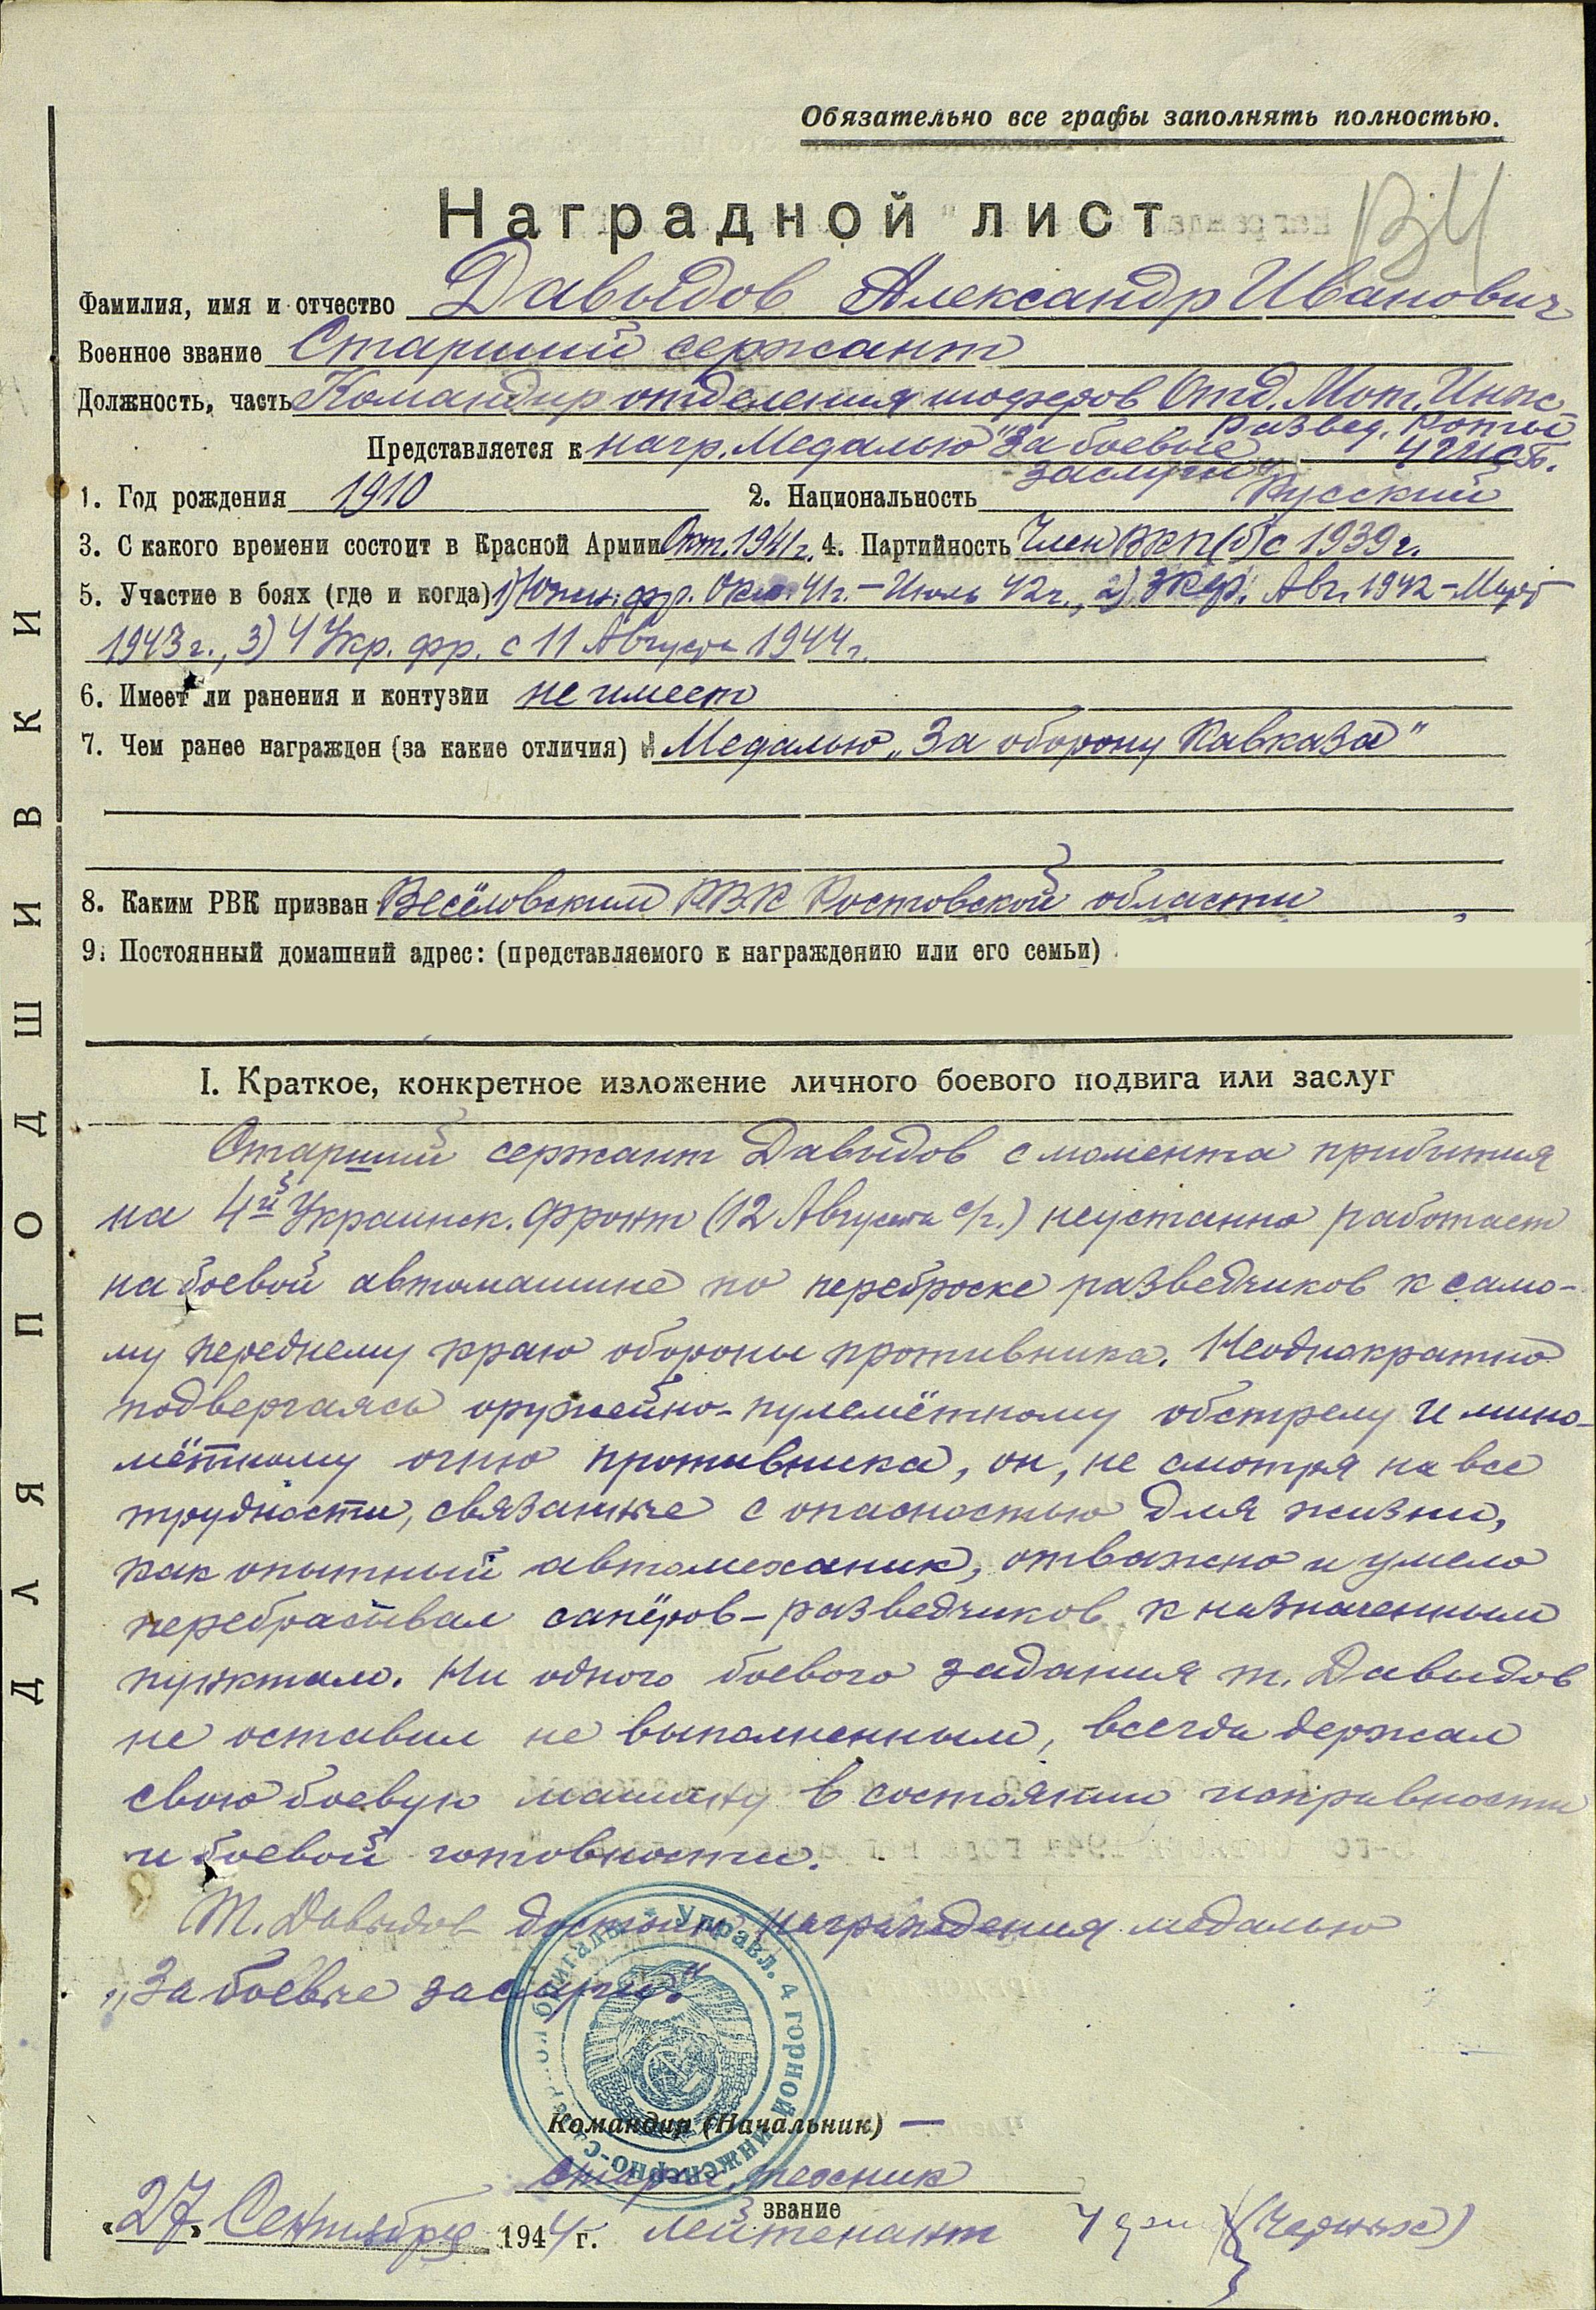 Обязательно все графы заполнять полностью.
Наградной лист
Фамилия, имя и отчество Давыдов Александр Иванович
Военное звание Старший сержант
Должность, часть Командир отделения шоферов Отд. Мот. Инж.
Развед. Роты
Представляется к нагр. Медалью "За боевые
заслуги"
1. Год рождения 1910 2. Национальность Русский
3. С какого времени состоит в Красной Армии Окт. 1941 г. 4. Партийность Член ВКП(б) с 1939 г.
5. Участие в боях (где и когда) 1) Южн. фр. Окт. 41 г. – Июль 42 г., 2) Авг. 1942 – Март
1943 г., 3) 4 Укр. фр. с 11 Августа 1944 г.
6. Имеет ли ранения и контузии не имеет
7. Чем ранее награжден (за какие отличия) Медалью „За оборону Кавказа"
8. Каким РВК призван Весёловским РВК Ростовской области
9. Постоянный домашний адрес: (представляемого к награждению или его семьи)
I. Краткое, конкретное изложение личного боевого подвига или заслуг
Старший сержант Давыдов с момента прибытия
на 4й Украинск. Фронт (12 Августа с/г.) неустанно работает
на боевой автомашине по переброске разведчиков к само-
му переднему краю обороны противника. Неоднократно
подвергаясь оружейно-пулемётному обстрелу и мино-
мётному огню противника, он, не смотря на все
трудности, связанные с опасностью для жизни,
как опытный автомеханик, отважно и умело
перебрасывал сапёров-разведчиков к назначенным
пунктам. Ни одного боевого задания т. Давыдов
не оставил не выполненным, всегда держал
свою боевую машину в состоянии исправности
и боевой готовности.
Т. Давыдов достоин награждения медалью
„За боевые заслуги".
Управл. 4 горной инженерно-сапёрной бригады
Командир (Начальник) —
Старш. техник
звание
„27" Сентября 1944 г. лейтенант (Черных)
ДЛЯ ПОДШИВКИ